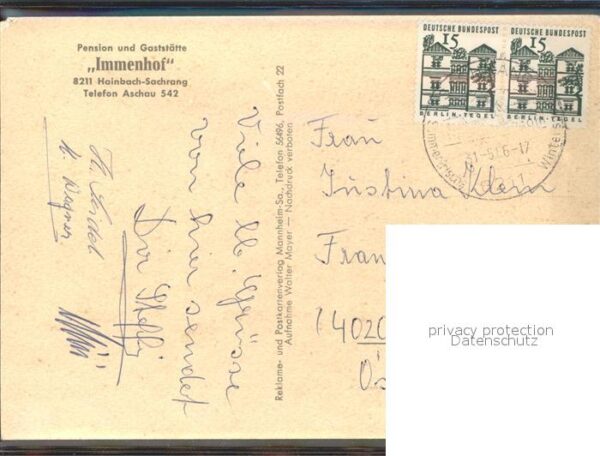 Pension und Gaststätte
„Immenhof"
8211 Hainbach-Sachrang
Telefon Aschau 542
Viele lb. Grüsse
von hier sendet
Dir Steffi
Reklame- und Postkartenverlag Mannheim-Sa., Telefon 56496, Postfach 22
Aufnahme Walter Mayer — Nachdruck verboten
DEUTSCHE BUNDESPOST
15
BERLIN-TEGEL
DEUTSCHE BUNDESPOST
15
BERLIN-TEGEL
Frau
Justina Klein
Fran
(4020
Ös
privacy protection
Datenschutz